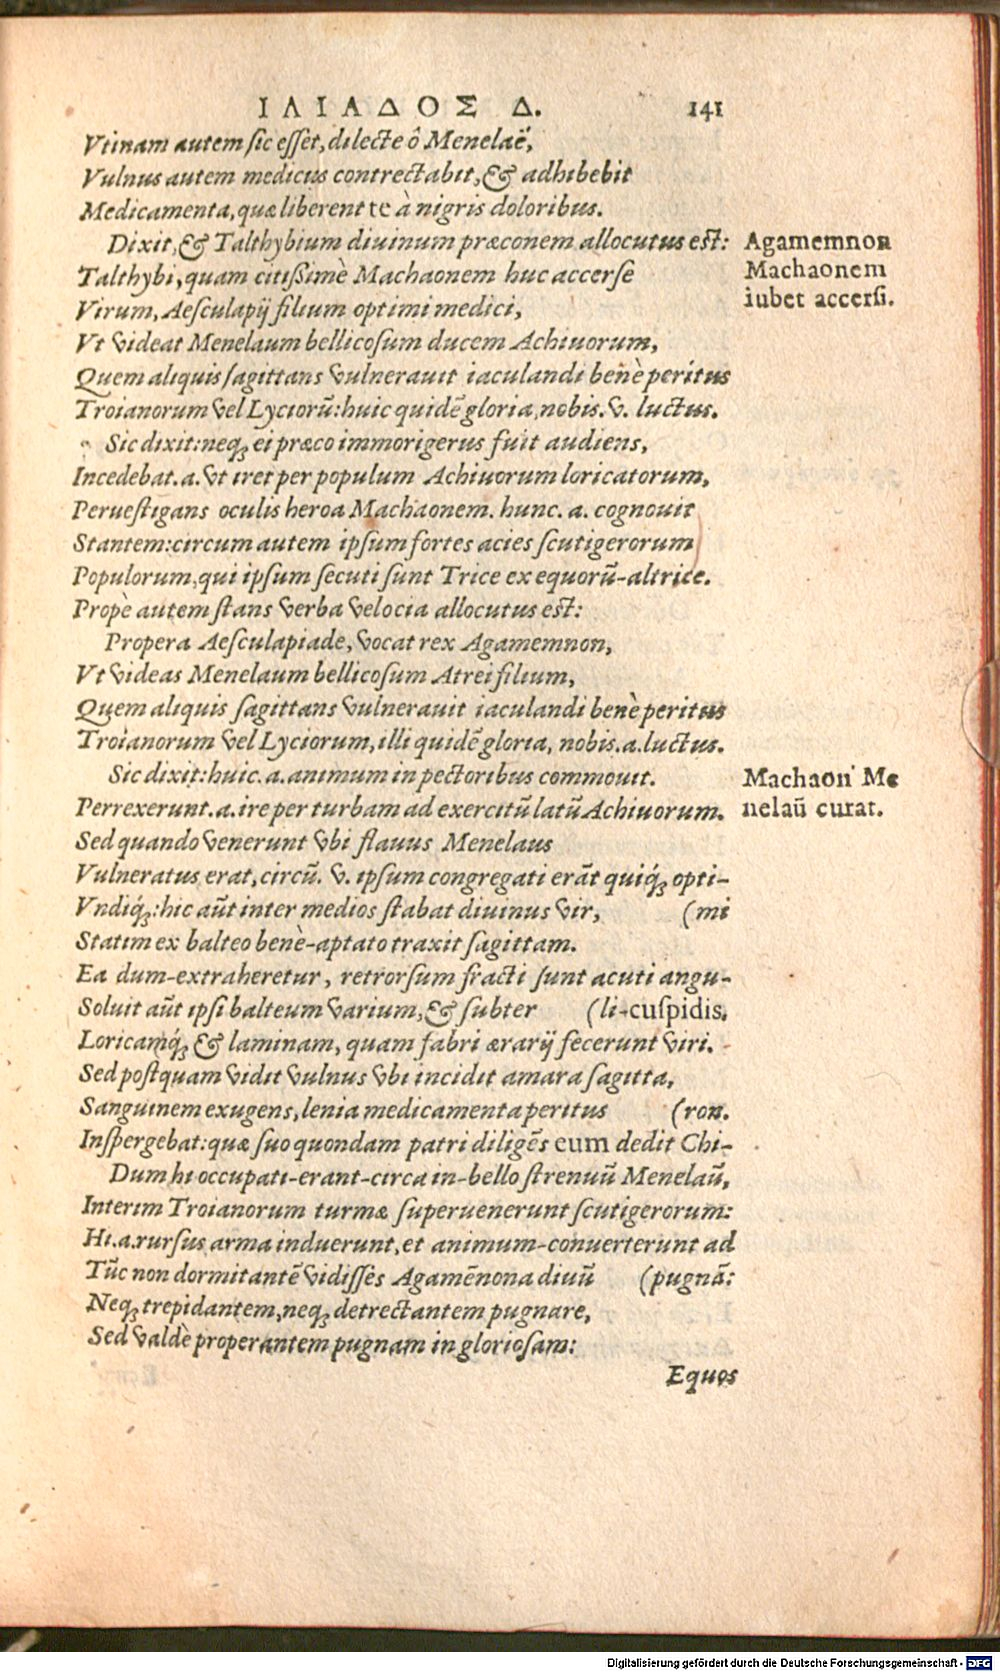 ΙΛΙΑΔΟΣ Δ. 141
Vtinam autem sic esset, dilecte ô Menelaë,
Vulnus autem medicus contrectabit, & adhibebit
Medicamenta, quæ liberent te à nigris doloribus.
Dixit, & Talthybium diuinum præconem allocutus est:
Agamemnon
Talthybi, quam citißimè Machaonem huc accerse
Machaonem
Virum, Aesculapij filium optimi medici,
iubet accersi.
Vt videat Menelaum bellicosum ducem Achiuorum,
Quem aliquis sagittans vulnerauit iaculandi benè peritus
Troianorum vel Lyciorū: huic quidē gloria, nobis. v. luctus.
Sic dixit: neq; ei præco immorigerus fuit audiens,
Incedebat. a. vt iret per populum Achiuorum loricatorum,
Peruestigans oculis heroa Machaonem. hunc. a. cognouit
Stantem: circum autem ipsum fortes acies scutigerorum
Populorum, qui ipsum secuti sunt Trice ex equorū-altrice.
Propè autem stans verba velocia allocutus est:
Propera Aesculapiade, vocat rex Agamemnon,
Vt videas Menelaum bellicosum Atrei filium,
Quem aliquis sagittans vulnerauit iaculandi benè peritus
Troianorum vel Lyciorum, illi quidē gloria, nobis. a. luctus.
Sic dixit: huic. a. animum in pectoribus commouit.
Machaon Me
Perrexerunt. a. ire per turbam ad exercitū latū Achiuorum.
nelaū curat.
Sed quando venerunt vbi flauus Menelaus
Vulneratus erat, circū. v. ipsum congregati erāt quiq́; opti-
Vndiq́;: hic aūt inter medios stabat diuinus vir, (mi
Statim ex balteo benè-aptato traxit sagittam.
Ea dum-extraheretur, retrorsum fracti sunt acuti angu-
Soluit aūt ipsi balteum varium, & subter (li-cuspidis.
Loricamq́; & laminam, quam fabri ærarij fecerunt viri.
Sed postquam vidit vulnus vbi incidit amara sagitta,
Sanguinem exugens, lenia medicamenta peritus (ron.
Inspergebat: quæ suo quondam patri diligēs eum dedit Chi-
Dum hi occupati-erant-circa in-bello strenuū Menelaū,
Interim Troianorum turmæ superuenerunt scutigerorum:
Hi. a. rursus arma induerunt, et animum-conuerterunt ad
Tūc non dormitantē vidisses Agamēnona diuū (pugnā:
Neq; trepidantem, neq; detrectantem pugnare,
Sed valdè properantem pugnam in gloriosam:
Equos
Digitalisierung gefördert durch die Deutsche Forschungsgemeinschaft - DFG